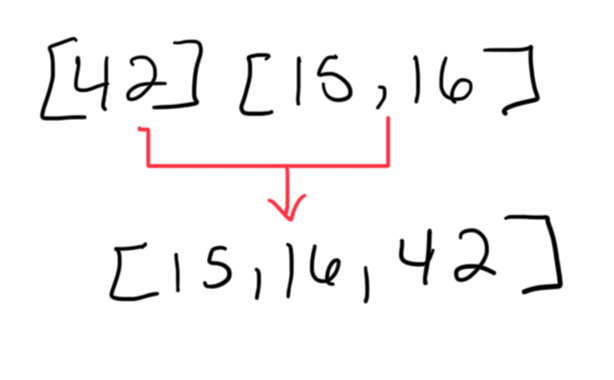 [42] [15,16]
[15,16,42]